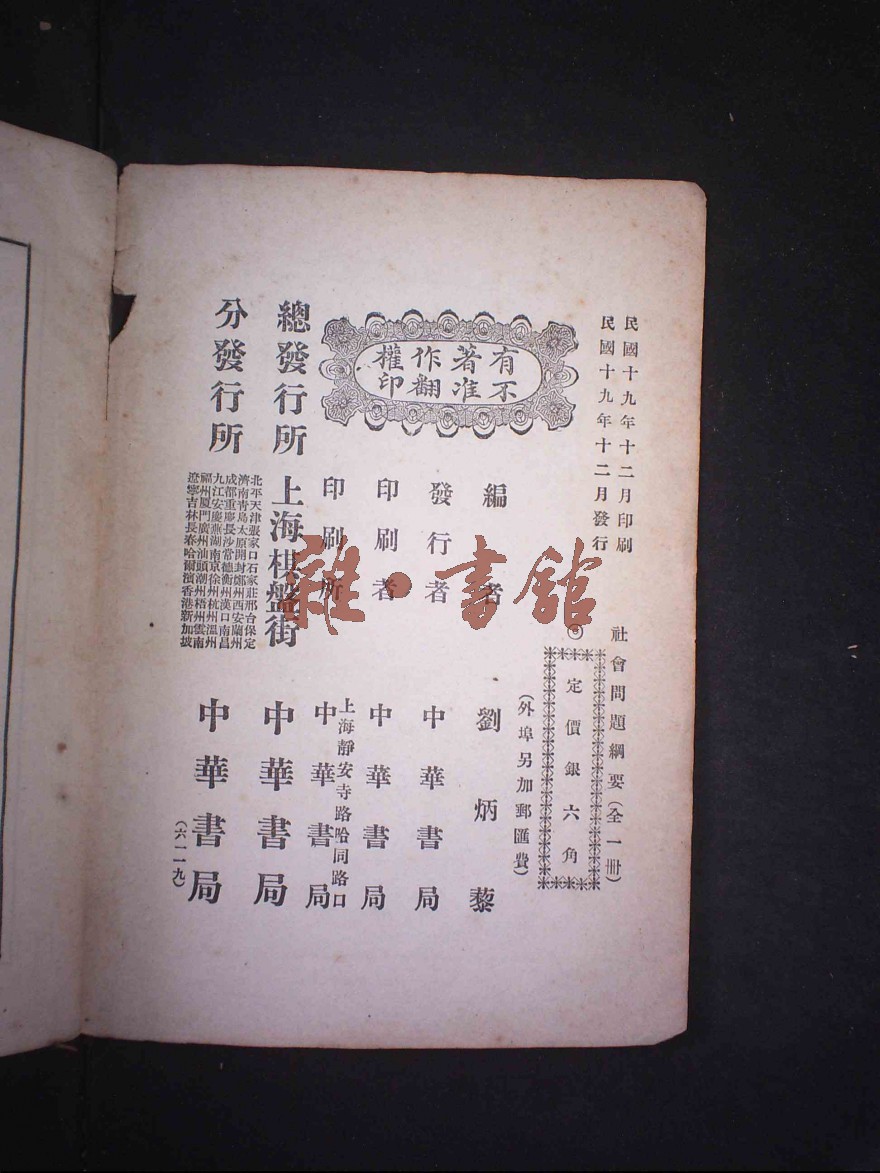 民國十九年十二月印刷
民國十九年十二月發行
社會問題綱要（全一冊）
定價銀六角
（外埠另加郵匯費）
有著作權
不准翻印
編者 劉炳藜
發行者 中華書局
印刷者 中華書局
上海靜安寺路哈同路口
印刷所 中華書局
總發行所 上海棋盤街 中華書局
分發行所
北平天津張家口石家莊邢台保定
濟南青島太原開封鄭州西安蘭州
成都重慶長沙常德衡州漢口南昌
九江安慶蕪湖南京徐州杭州溫州
福州廈門廣州汕頭潮州梧州雲南
遼寧吉林長春哈爾濱香港新加坡
中華書局
（六二一九）
雜·書館